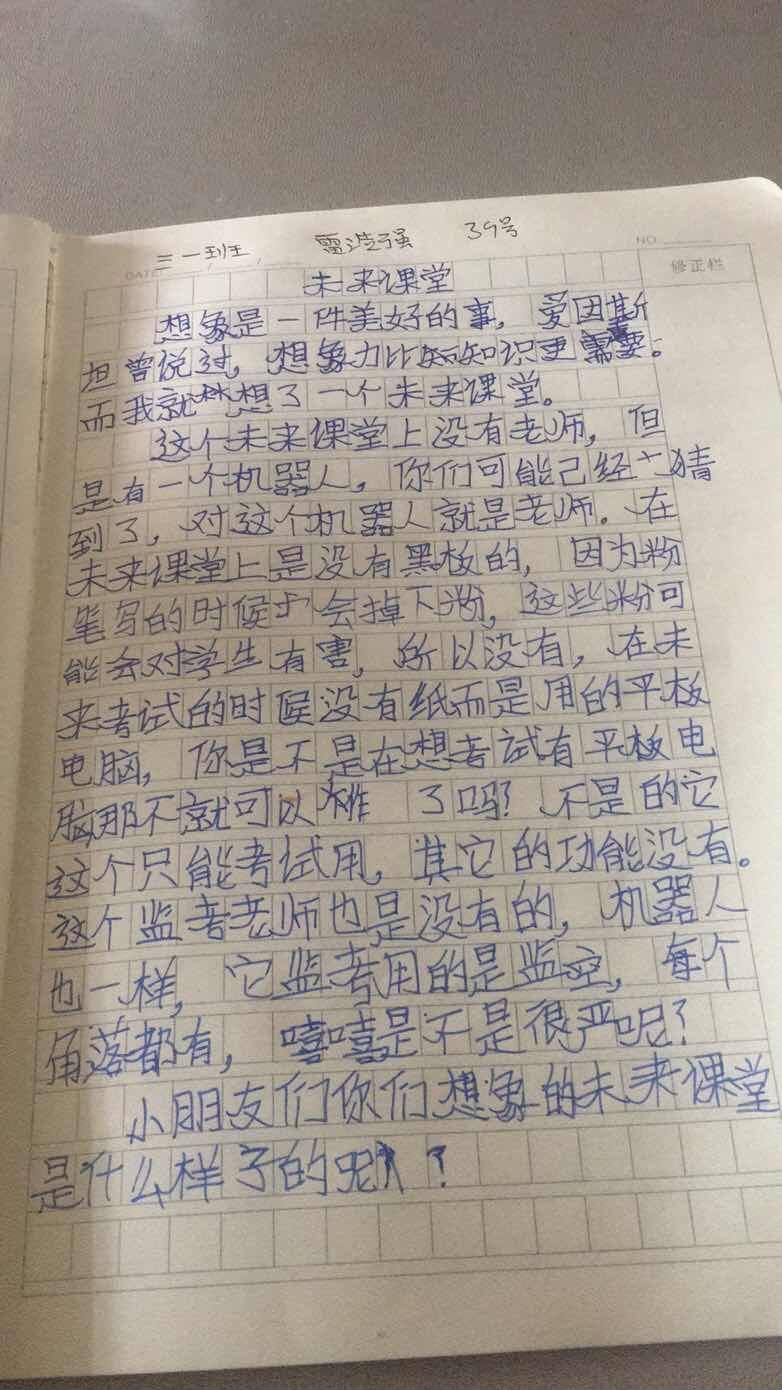 三一班 雷浩强 39号
DATE
NO
修正栏
未来课堂
想象是一件美好的事，爱因斯
坦曾说过，想象力比知识更需要。
而我就想了一个未来课堂。
这个未来课堂上没有老师，但
是有一个机器人，你们可能己经猜
到了，对这个机器人就是老师。在
未来课堂上是没有黑板的，因为粉
笔写的时候会掉下粉，这些粉可
能会对学生有害，所以没有，在未
来考试的时候没有纸而是用的平板
电脑，你是不是在想考试有平板电
脑那不就可以 了吗？不是的它
这个只能考试用，其它的功能没有。
这个监考老师也是没有的，机器人
也一样，它监考用的是监空，每个
角落都有，嘻嘻是不是很严呢？
小朋友们你们想象的未来课堂
是什么样子的呢？